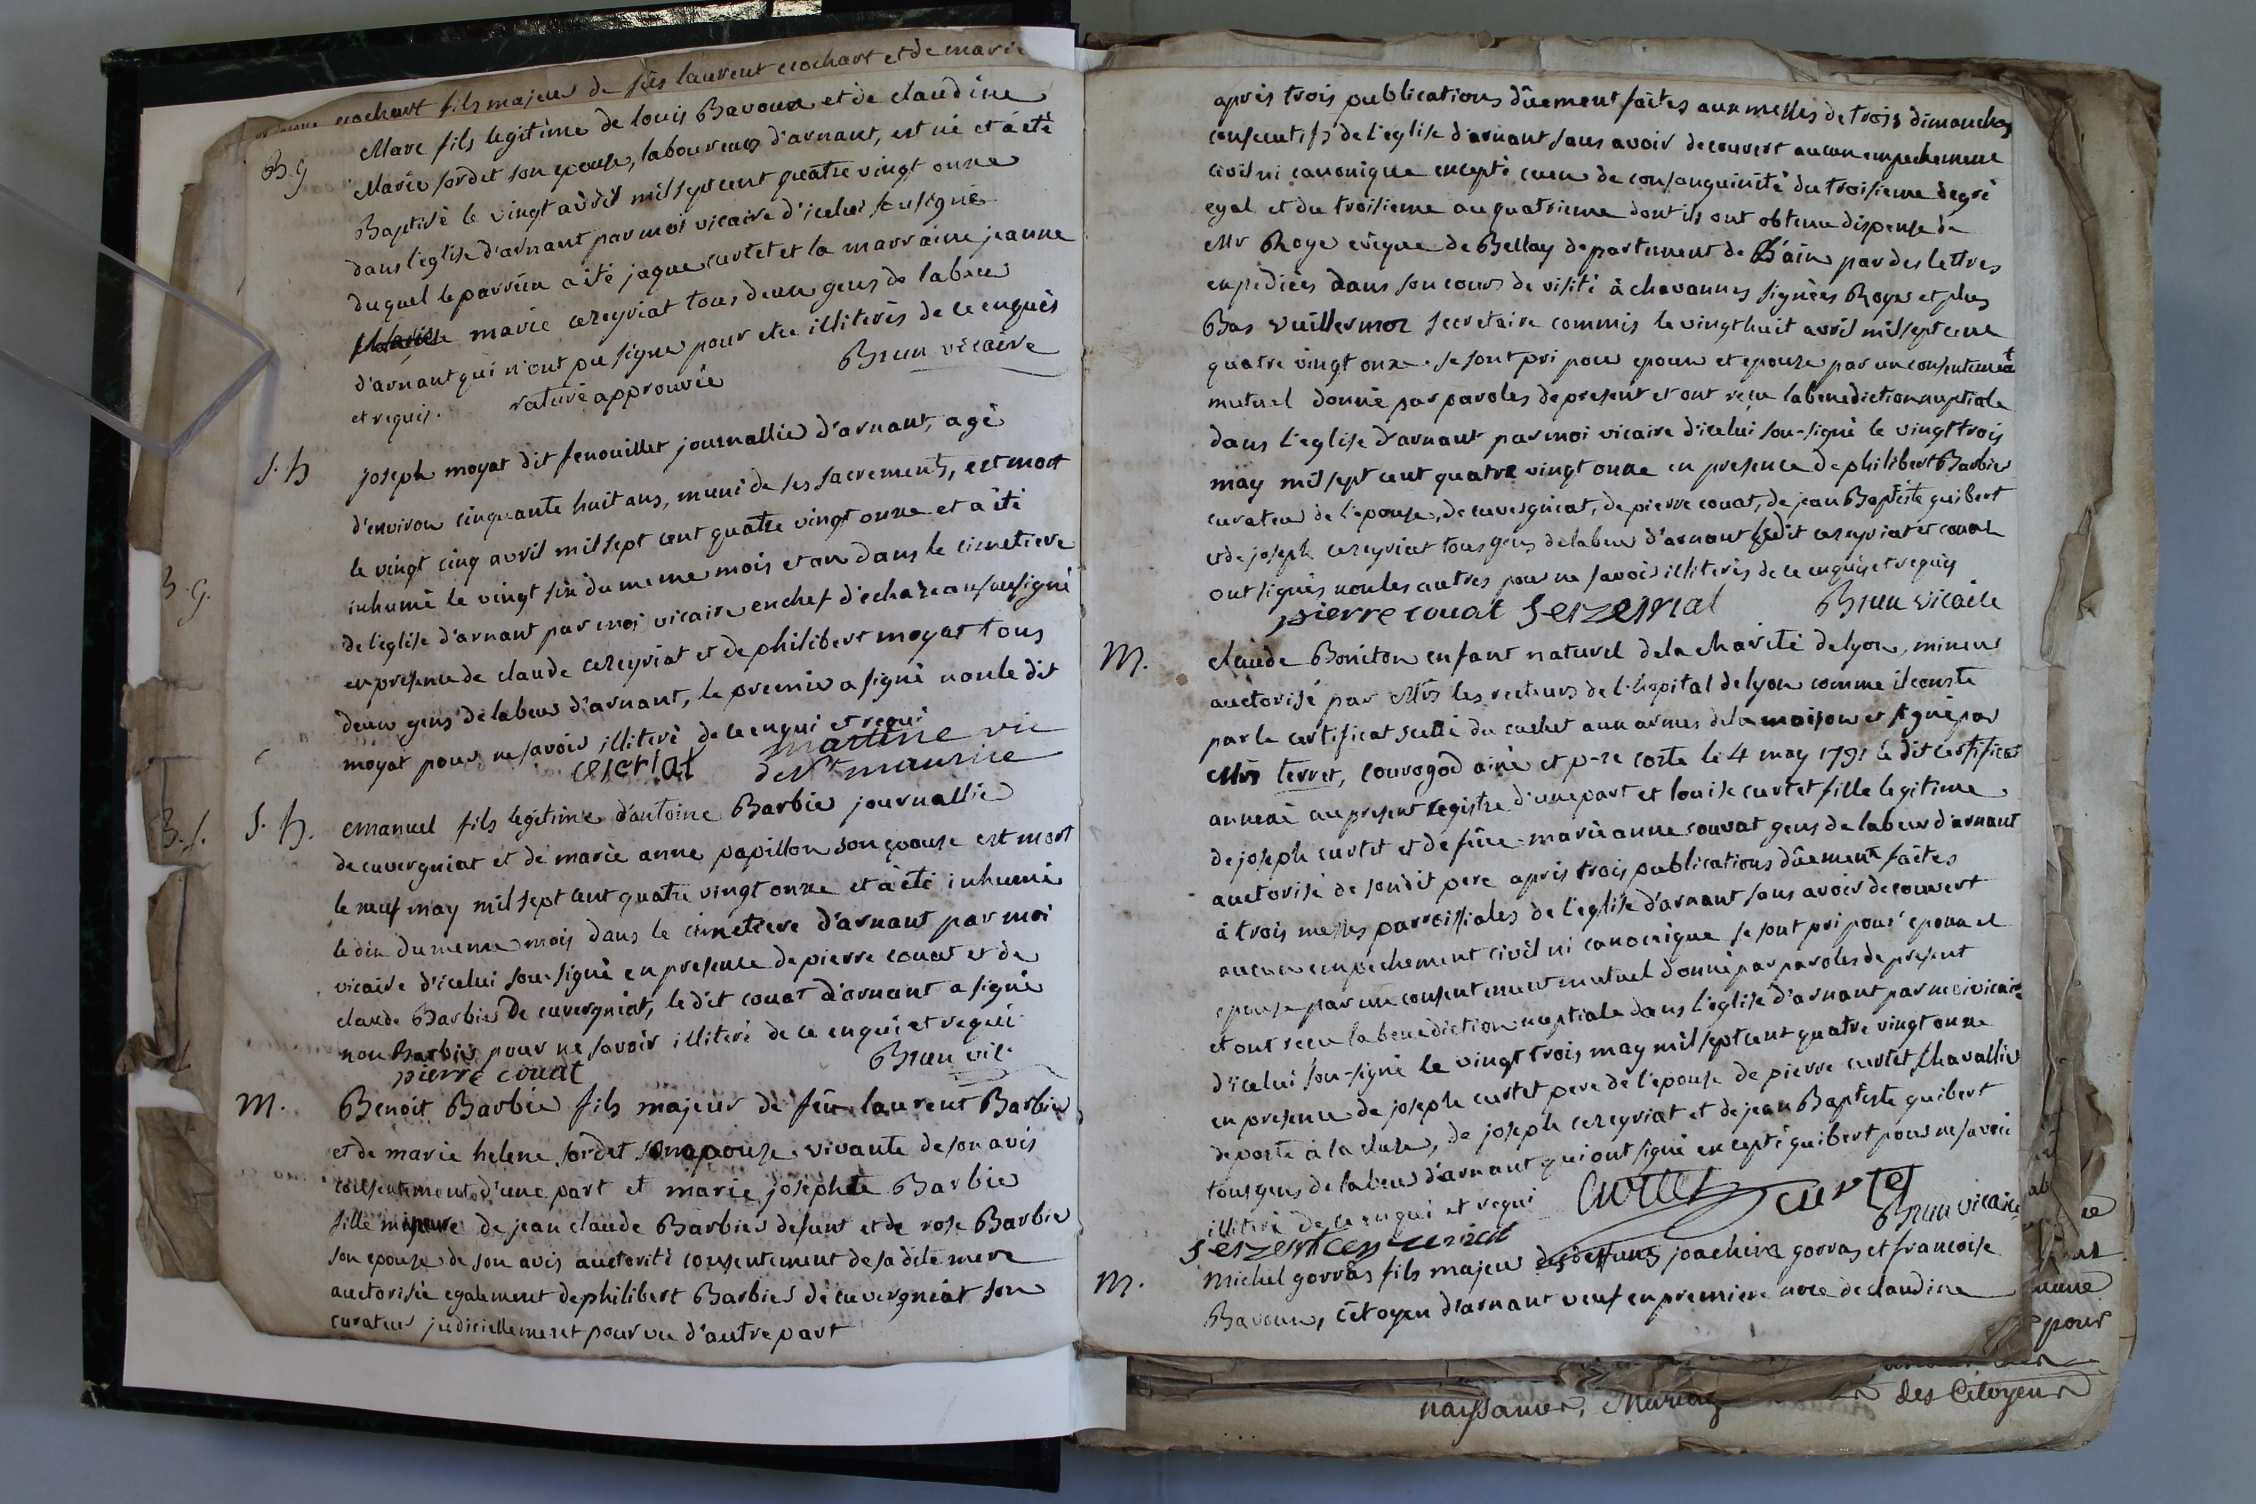 crochart fils majeur de feu laurent crochart et de marie
B. G
Marc fils legitime de louis Bavoux et de claudine
Marie sordet son epouse, laboureurs d'arnant, est né et á eté
Baptisé le vingt avril mil sept cent quatre vingt onze
dans l'eglise d'arnant par moi vicaire d'icelui sousigné
duquel le parrein a été jaque curtet et la marraine jeanne
marie cereyriat tous deux gens de labeur
d'arnant qui n'ont pu signer pour etre illiterés de ce enquis
et requis. rature approuvée Brun vicaire
S. h
joseph moyat dit fenouillet journallier d'arnant, agé
d'environ cinquante huit ans, muni de ses sacrements, est mort
le vingt cinq avril mil sept cent quatre vingt onze et á été
inhumé le vingt six du meme mois et an dans le cimetiere
de l'eglise d'arnant par moi vicaire en chef d'echazeau sousigné
en presence de claude cereyriat et de philibert moyat tous
deux gens de labeur d'arnant, le premier a signé non le dit
moyat pour ne savoir illiteré de ce enqui et requi
martine vic
de St maurice
B. G.
B. S.
S. h.
emanuel fils legitime d'antoine Barbier journallier
de cuvergniat et de marie anne papillon son epouse est mort
le neuf may mil sept cent quatre vingt onze et á été inhumé
le dix du meme mois dans le cimetiere d'arnant par moi
vicaire d'icelui sou-signé en presence de pierre couat et de
claude Barbier de cuvergniat, le dit couat d'arnant a signé
non Barbier pour ne savoir illiteré de ce enqui et requi
pierre couat Brun vic.
M.
Benoit Barbier fils majeur de feu laurent Barbier
et de marie helene sordet son epouse vivante de son avis
consentement d'une part et marie josephte Barbier
fille mineure de jean claude Barbier defunt et de rose Barbier
son epouse de son avis auctorité consentement de sa dite mere
auctorisée egalement de philibert Barbier de cuvergniat son
curateur judiciellement pourvu d'autre part
aprés trois publications dûement faites aux messes de trois dimanches
consecutifs de l'eglise d'arnant sans avoir decouvert aucun empechement
civil ni canonique excepté ceux de consanguinité du troisieme degré
egal et du troisieme au quatrieme dont ils ont obtenu dispense de
Mr Roye evêque de Bellay departement de l'ain par des lettres
expediées dans son cours de visite á chavannes signées Royer et plus
Bas vuillermoz secretaire commis le vingt huit avril mil sept cent
quatre vingt onze. se sont pri pour epoux et epouze par un consentement
mutuel donné par paroles de present et ont reçu la benediction nuptiale
dans l'eglise d'arnant par moi vicaire d'icelui sou-signé le vingt trois
may mil sept cent quatre vingt onze en presence de philibert Barbier
curateur de l'epouse, de cuvergniat, de pierre couat, de jean Baptiste guibert
et de joseph cereyriat tous gens de labeur d'arnant ledit cereyriat et couat
ont signés non les autres pour ne savoir illiterés de ce enquis et requis
pierre couat Brun vicaire
M.
claude Boniton enfant naturel de la charité de lyon, mineur
auctorisé par Mrs les recteurs de l'hopital de lyon comme il conste
par le certificat scellé du cachet aux armes de la maison et signé par
Mrs terret, couvogod ainé et p-re coste le 4 may 1791 le dit certificat
annexé au present registre d'une part et louise curtet fille legitime
de joseph curtet et de feue marie anne couvat gens de labeur d'arnant
auctorisé de son dit pere aprés trois publications dûement faites
á trois messes paroissiales de l'eglise d'arnant sans avoir decouvert
aucun empechement civil ni canonique se sont pri pour epoux et
epouse par un consentement mutuel donné par paroles de present
et ont reçu la benediction nuptiale dans l'eglise d'arnant par moi vicaire
d'icelui sou-signé le vingt trois may mil sept cent quatre vingt onze
en presence de joseph curtet pere de l'epouse de pierre curtet chavallier
de poste á la cluse, de joseph cereyriat et de jean Baptiste guibert
tous gens de labeur d'arnant qui ont signé excepté guibert pour ne savoir
illiteré de ce enqui et requi curtet curtet
Brun vicaire
M.
Michel gorras fils majeur des deffunts joachim gorras et francoise
Bavoux, citoyen d'arnant veuf en premiere noce de claudine
pour
des Citoyens
naissances, Mariag